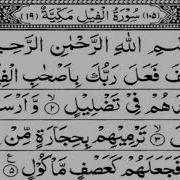 (١٠٥) سُوْرَةُ الْفِيْلِ مَكِّيَّةٌ (١٩)
سْمِ اللهِ الرَّحْمٰنِ الرَّحِيْ
فَ فَعَلَ رَبُّكَ بِاَصْحٰبِ الْفِ
دَهُمْ فِيْ تَضْلِيْلٍ ۙ٢ وَّاَرْسَ
ۙ٣ تَرْمِيْهِمْ بِحِجَارَةٍ مِّنْ
فَجَعَلَهُمْ كَعَصْفٍ مَّاْكُوْلٍ ٥